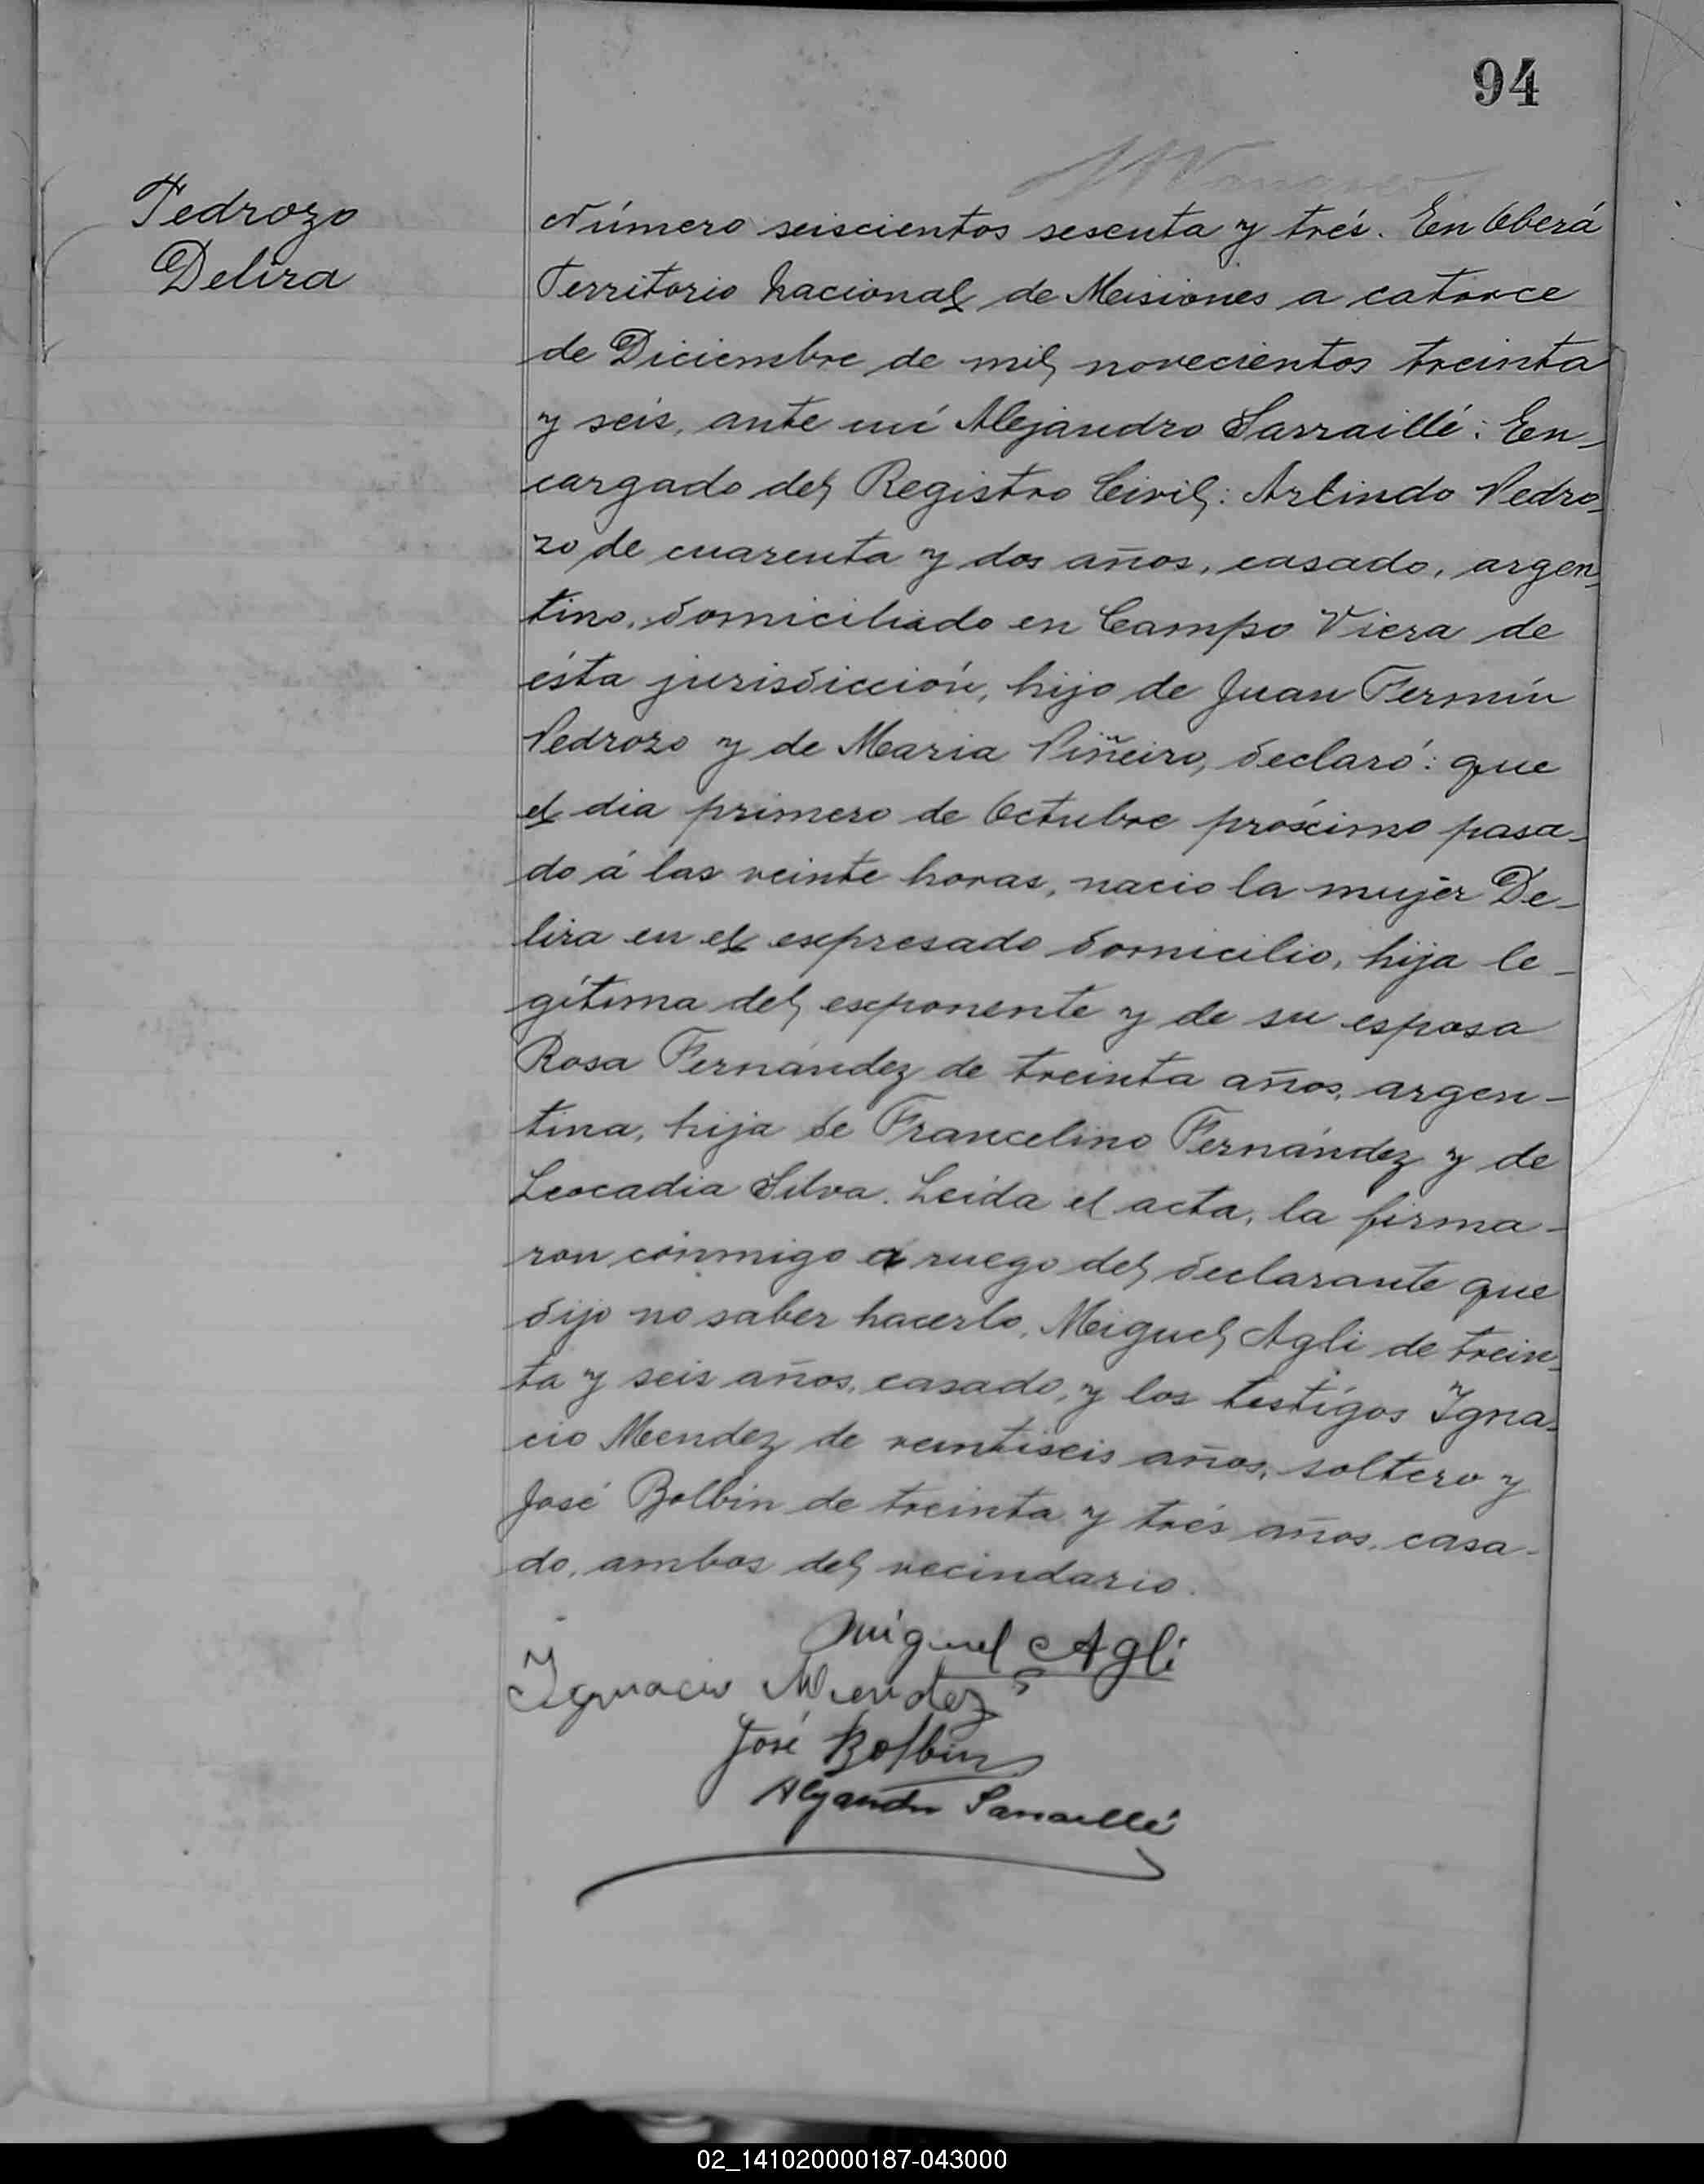 94
Pedrozo
Delira
Número seiscientos sesenta y trés. En Oberá
Territorio Nacional de Misiones a catorce
de Diciembre de mil novecientos treinta
y seis, ante mí Alejandro Sarraillé: En-
cargado del Registro Civil: Arlindo Pedro-
zo de cuarenta y dos años, casado, argen-
tino, domiciliado en Campo Viera de
ésta jurisdicción, hijo de Juan Fermín
Pedrozo y de Maria Piñeiro, declaró: que
el dia primero de Octubre próximo pasa-
do á las veinte horas, nacio la mujer De-
lira en el expresado domicilio, hija le-
gítima del exponente y de su esposa
Rosa Fernández de treinta años, argen-
tina, hija de Francelino Fernández y de
Leocadia Silva. Leída el acta, la firma-
ron conmigo a ruego del declarante que
dijo no saber hacerlo, Miguel Agli de trein-
ta y seis años, casado, y los testigos Igna-
cio Mendez de veintiseis años, soltero y
José Bolbin de treinta y trés años, casa-
do, ambos del vecindario.
Miguel Agli
Ignacio Mendez
José Bolbin
Alejandro Sarraillé
02_141020000187-043000